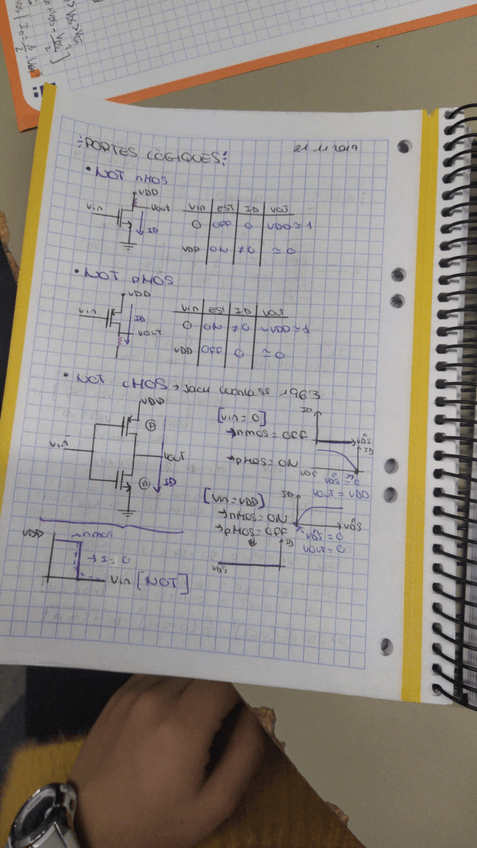 PORTES LÒGIQUES: 21 11 2019
• NOT nMOS
VDD
Vin Vout ID
Vin EST ID VOUT
0 OFF 0 VDD≃1
VDD ON ≠0 ≃0
• NOT pMOS
VDD
Vin ID VOUT
Vin EST ID VOUT
0 ON ≠0 ~VDD≃1
VDD OFF 0 ≃0
• NOT CMOS → 1963
VDD
Vin Vout
ID
[Vin=0]
→ nMOS = OFF
→ pMOS = ON
ID
VDS
ID
VDS = 0
VOUT = VDD
[Vin=VDD]
→ nMOS = ON
→ pMOS = OFF
ID
VDS
VDS = 0
VOUT = 0
ID
VDS
VDD nMOS
→ I = 0
Vin [NOT]